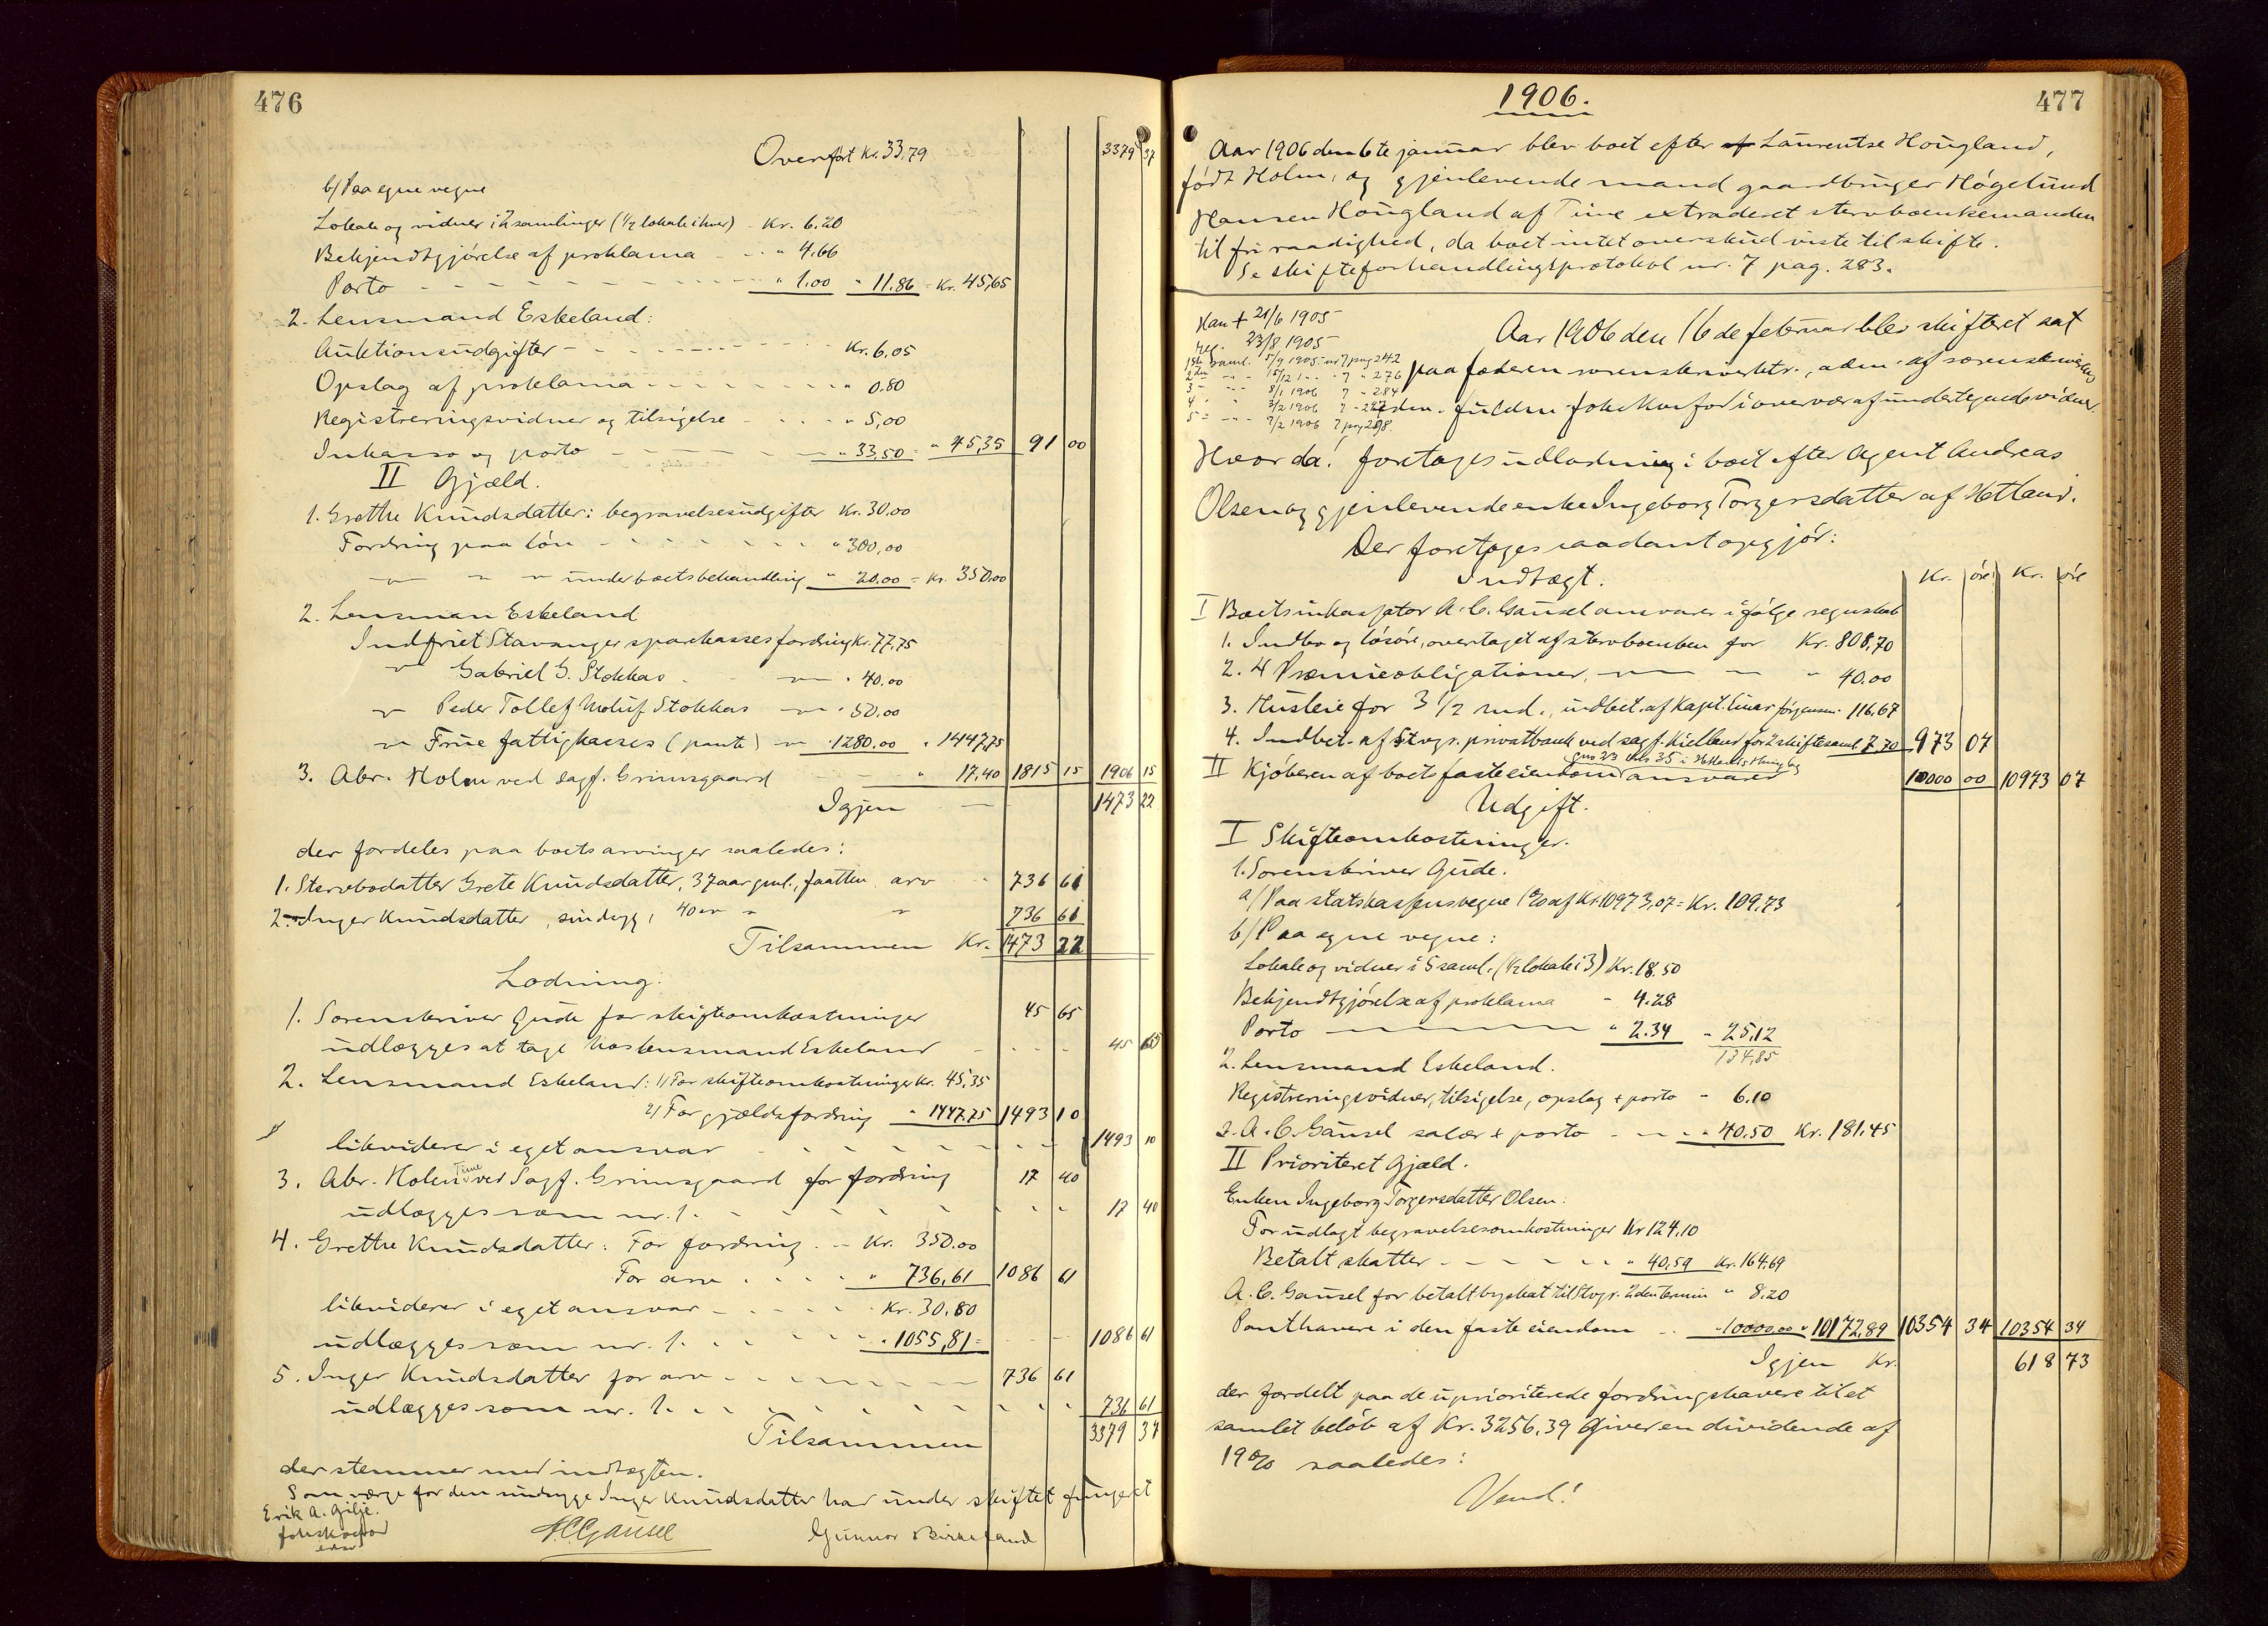 476
Overført Kr. 33,79 3379 37
b/ Paa egne vegne
Lokale og vidner i 2 samlinger (1/2 lokale i hver) - Kr. 6.20
Bekjendtgjørelse af proklama - - " 4,66
Porto - - - - " 1.00 " 11.86 = Kr. 45,65
2. Lensmand Eskeland:
Auktionsudgifter - - - - Kr. 6.05
Opslag af proklama - - - - " 0.80
Registreringsvidner og tilsigelse - - - " 5,00
Inkasso og porto - - - - " 33,50 = " 45,35 91 00
II Gjæld.
1. Grethe Knudsdatter: begravelsesudgifter Kr. 30,00
Fordring paa løn - - - - " 300,00
— " — " — under boets behandling " 20.00 = Kr. 350.00
2. Lensman Eskeland
Indfriet Stavanger sparekasses fordring Kr. 77,75
— " — Gabriel G. Stokkas — " — " 40.00
— " — Peder Tollef Stokkas — " — " 50.00
— " — Frue fattigkasses (pante) — " — " 1280.00 " 1447,75
3. Abr. Holm ved sagf. Grimsgaard - - " 17,40 1815 15 1906 15
Igjen — 1473 22
der fordeles paa boets arvinger saaledes:
1. Stervbodatter Grete Knudsdatter, 37 aar gml., faatten arv - - 736 61
2. Inger Knudsdatter, sindsyg, 40 " " " 736 61
Tilsammen Kr. 1473 22
Lodning.
1. Sorenskriver Gude for skifteomkostninger 45 65
udlægges at tage hos lensmand Eskeland - - - - 45 65
2. Lensmand Eskeland: 1/ For skifteomkostninger Kr. 45,35
2/ For gjældsfordring " 1447.75 1493 10
likviderer i eget ansvar - - - - 1493 10
3. Abr. Holm Time ved Sagf. Grimsgaard for fordring 17 40
udlægges som nr. 1. - - - - 17 40
4. Grethe Knudsdatter: For fordring. - Kr. 350.00
For arv - - - - " 736,61 1086 61
likviderer i eget ansvar - - - - Kr. 30,80
udlægges som nr. 1. - - - " 1055,81 = - - - 1086 61
5. Inger Knudsdatter for arv - - - - 736 61
udlægges som nr. 1. - - - - 736 61
Tilsammen 3379 37
der stemmer med indtægten.
Som værge for den sindsyge Inger Knudsdatter har under skiftet fungeret
Erik A. Gilje.
A.C. Gausel Gunnar Birkeland
1906. 477
Aar 1906 den 6te januar blev boet efter af Laurentse Hougland,
født Holm, og gjenlevende mand gaardbruger Høgelund
Hansen Hougland af Time extraderet stervboenkemanden
til fri raadighed, da boet intet overskud viste til skifte.
Se skifteforhandlingsprotokol nr. 7 pag. 283.
Han † 21/6 1905
Reg. 23/8 1905
1ste saml. 5/9 1905 - nr 7 pag 242
2den — " — 15/12 " " 7 " 276
3 — " — 8/1 1906 7 - 284
4 " 3/2 1906 7 - 297
5 — " — 7/2 1906 7 pag 298.
Aar 1906 den 16de februar blev skifteret sat
paa Jæderen sorenskriverktr., adm. af sorenskriver
edm. fuldm. Folkvord i overvær af undertegnede vidner.
Hvorda! foretoges udlodning i boet efter Agent Andreas
Olsen og gjenlevende enke Ingeborg Torgersdatter af Hetland.
Der foretoges saadant opgjør:
Indtægt. Kr. øre Kr. øre
I Boets inkassator A. C. Gausel ansvarer ifølge regnskab
1. Indbo og løsøre, overtaget af stervboenken for Kr. 808,70
2. 4 Præmieobligationer, — " — — " 40.00
3. Husleie for 3 1/2 md., indbet. af Kapt. Einar Jørgensen " 116,67
4. Indbet. af Stvgr. privatbank ved sagf. Kielland for 2 skiftesaml. 7,70 973 07
gno 23 bno 35 i Hetlands thinglag
II Kjøberen af boets faste eiendom ansvarer 10000 00 10973 07
Udgift.
I Skifteomkostninger.
1. Sorenskriver Gude.
a/ Paa statskassens vegne 1% af Kr. 10973,07 = Kr. 109,73
b/ Paa egne vegne:
Lokale og vidner i 5 saml. (1/2 lokale i 3) Kr. 18.50
Bekjendtgjørelse af proklama - 4.28
Porto — " 2.34 " 25,12
134,85
2. Lensmand Eskeland.
Registreringsvidner, tilsigelse, opslag + porto " 6.10
3. A. C. Gausel salær & porto - - - " 40.50 Kr. 181.45
II Prioriteret Gjæld.
Enken Ingeborg Torgersdatter Olsen:
For udlagt begravelsesomkostninger Kr 124,10
Betalt skatter - - - - " 40,59 Kr. 164,69
A. C. Gausel for betalt byskat til Stvgr. 2den termin " 8,20
Panthavere i den faste eiendom - - " 10000,00 " 10172,89 10354 34 10354 34
Igjen Kr. 618 73
der fordelt paa de uprioriterede fordringshavere til et
samlet beløb af Kr. 3256,39 giver en dividende af
19% saaledes:
Vend!